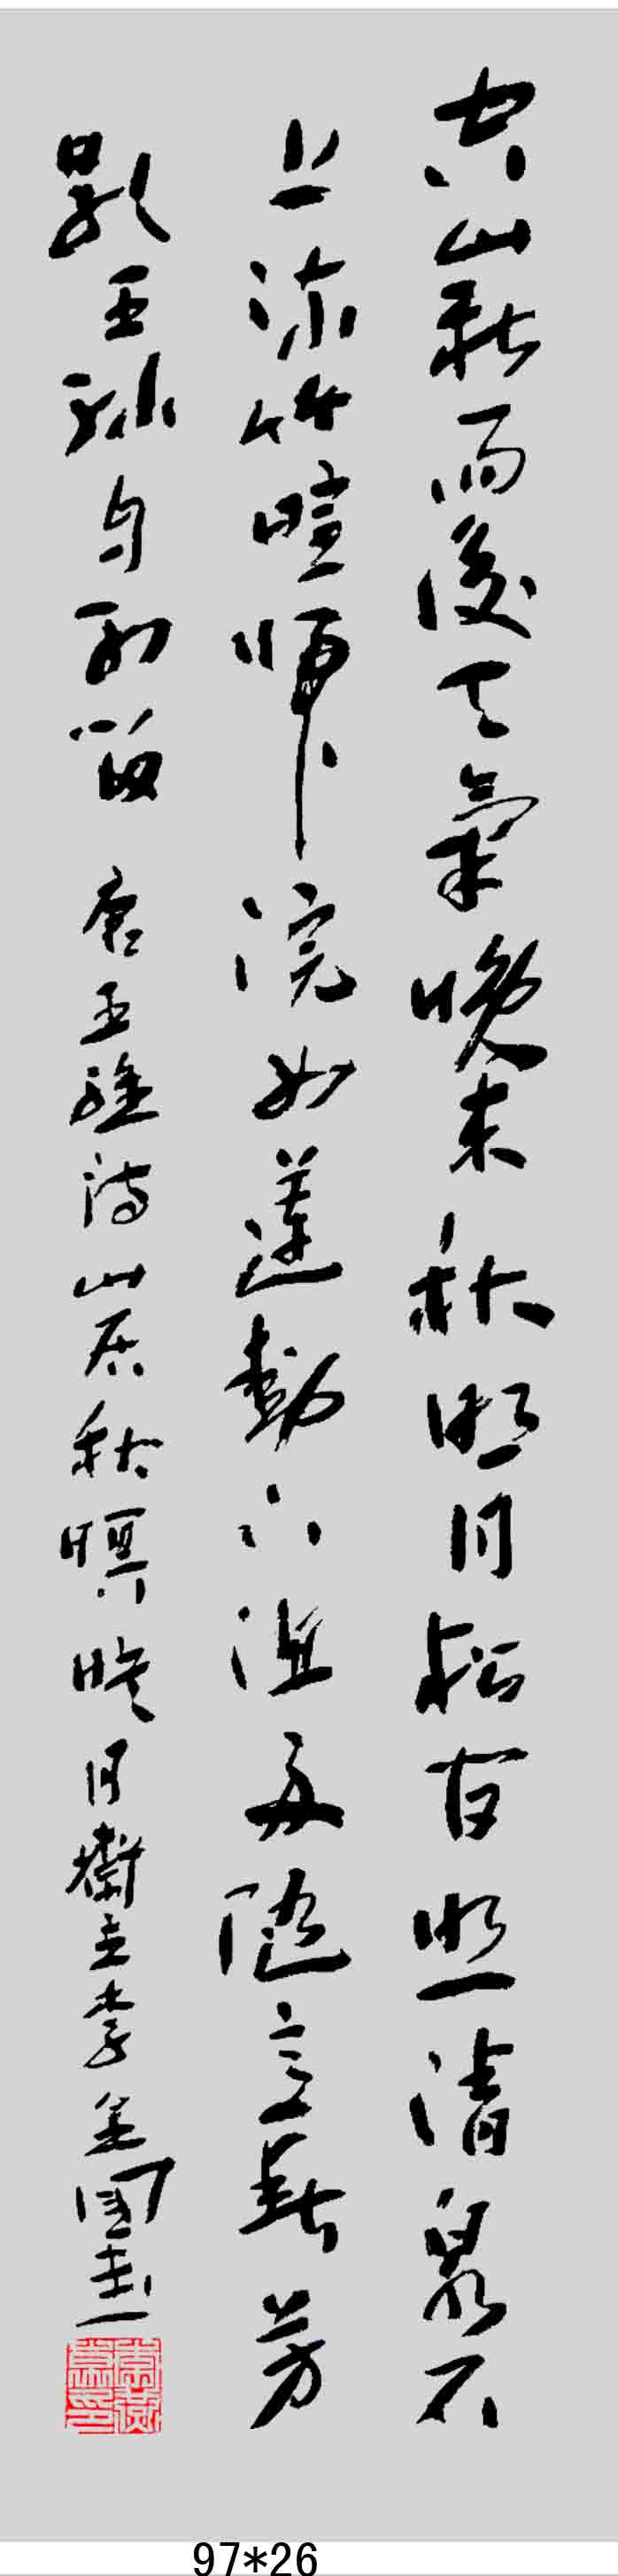 空山新雨後天氣晚来秋明月松间照清泉石
上流竹喧歸浣女蓮動下漁舟隨意春芳
歇王孫自可留 唐王維詩山居秋暝 月齋主李金國書
97*26